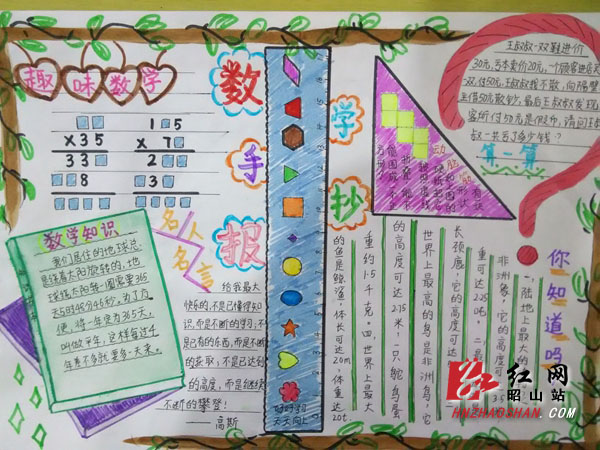 趣味数学
□□
×35
33□
□□8
1□5
×7□
2□□
□3□
数学手抄报
王叔叔一双鞋进价
30元,亏本卖价20元,一个顾客进店买
算一算
数学知识
我们居住的地球总
是绕着太阳旋转的,地
球绕太阳转一圈需要365
天5时48分46秒,为了方
便,将一年定为365天。
叫做平年,这样每过4
年差不多就要多一天来。
名人
名言
给我最大
快乐的,不是已懂得知
识,而是不断的学习;不
是已有的东西,而是不断
的获取;不是已达到
的高度,而是继续
不断的攀登!
高斯
好好学习
天天向上
你知道吗
一陆地上最大的
非洲象,它的高度可
重可达225吨。二最
长颈鹿,它的高度可达
世界上最高的鸟是非洲鸟,它
的高度可达2.75米,一只鸵鸟蛋
重约1.5千克。四世界上最大
的鱼是鲸鲨,体长可达20m,体重达20t
红网
昭山站
HNZHAOSHAN.COM